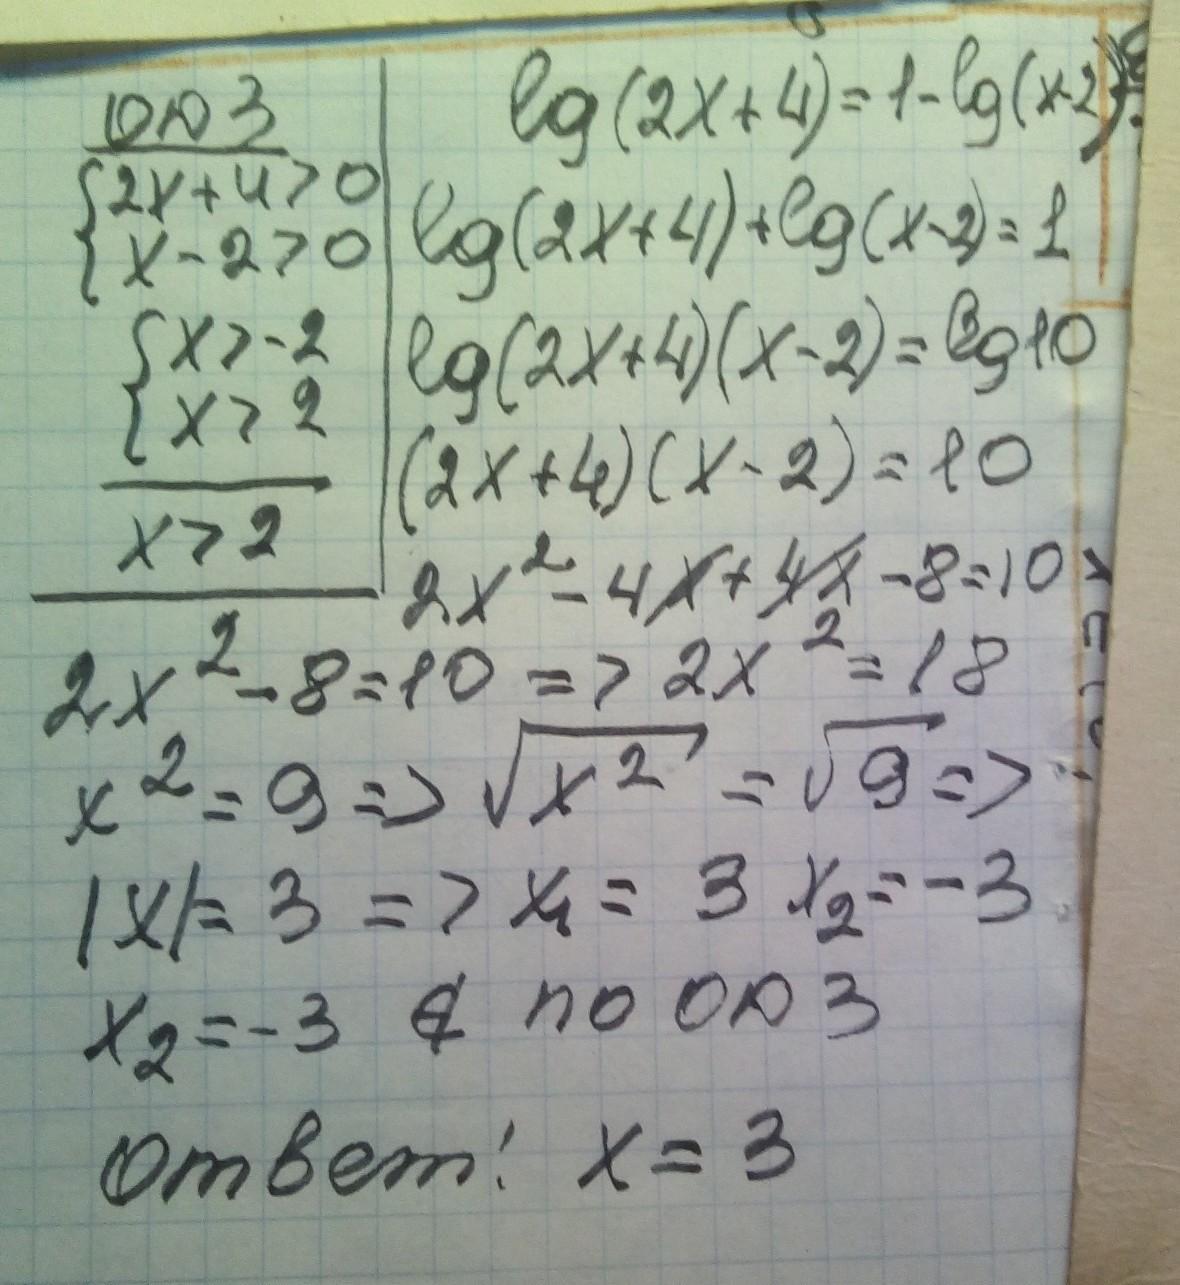 ОДЗ
{2x+4>0
{x-2>0
{x>-2
{x>2
x>2
lg(2x+4)=1-lg(x-2)
lg(2x+4)+lg(x-2)=1
lg(2x+4)(x-2)=lg10
(2x+4)(x-2)=10
2x²-4x+4x-8=10
2x²-8=10 => 2x²=18
x²=9 => √x² = √9 =>
|x|=3 => x₁=3 x₂=-3
x₂=-3 ∉ по ОДЗ
Ответ: x=3